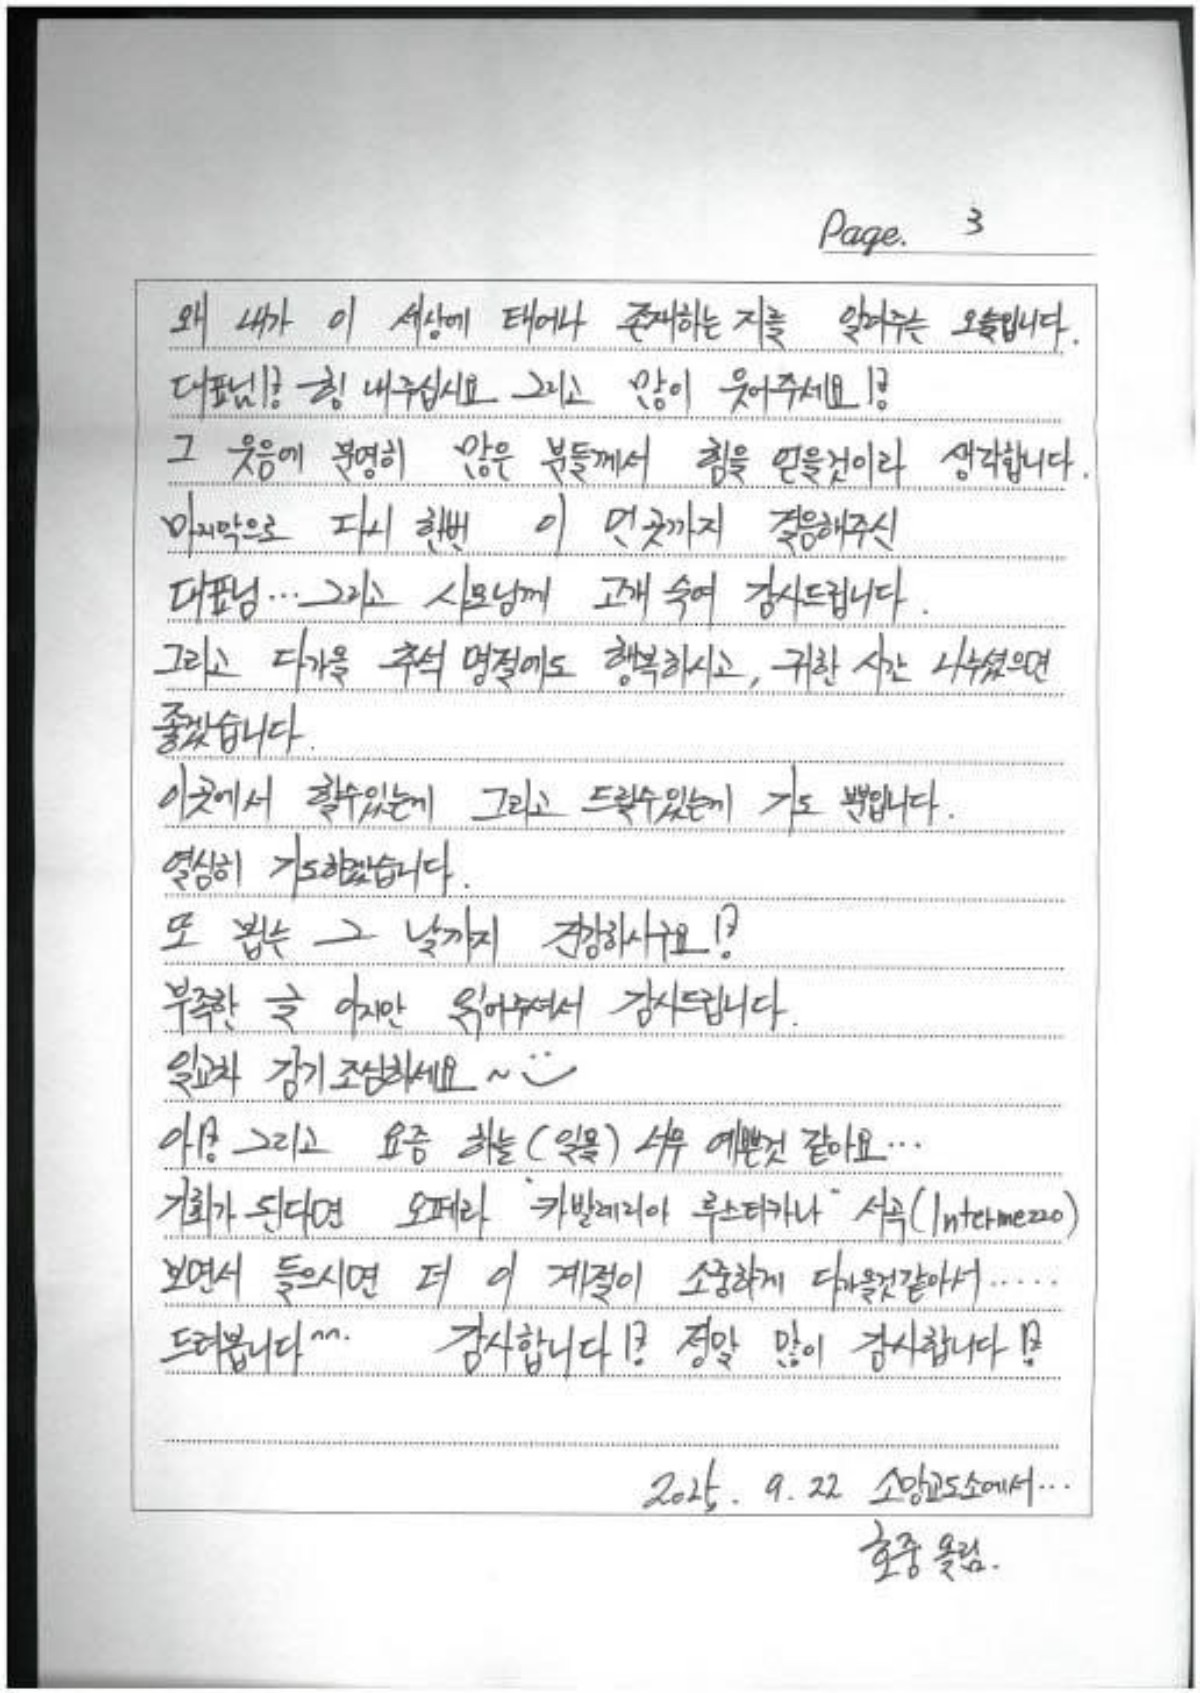 Page. 3
왜 내가 이 세상에 태어나 존재하는 지를 알려주는 오늘입니다.
대표님!? 힘 내주십시요 그리고 많이 웃어주세요!?
그 웃음에 분명히 많은 분들께서 힘을 얻을것이라 생각합니다.
마지막으로 다시 한번 이 먼곳까지 걸음해주신
대표님... 그리고 사모님께 고개 숙여 감사드립니다.
그리고 다가올 추석 명절에도 행복하시고, 귀한 시간 나누셨으면
좋겠습니다.
이곳에서 할수있는게 그리고 드릴수있는게 기도 뿐입니다.
열심히 기도하겠습니다.
또 뵙는 그 날까지 건강하시구요!?
부족한 글 이지만 읽어주셔서 감사드립니다.
일교차 감기 조심하세요~
아!? 그리고 요즘 하늘(일몰) 너무 예쁜것 같아요...
기회가 된다면 오페라 "카발레리아 루스티카나" 서곡(Intermezzo)
보면서 들으시면 더 이 계절이 소중하게 다가올것같아서.....
드려봅니다^^. 감사합니다!? 정말 많이 감사합니다!?
2025. 9. 22 소망교도소에서...
호중 올림.